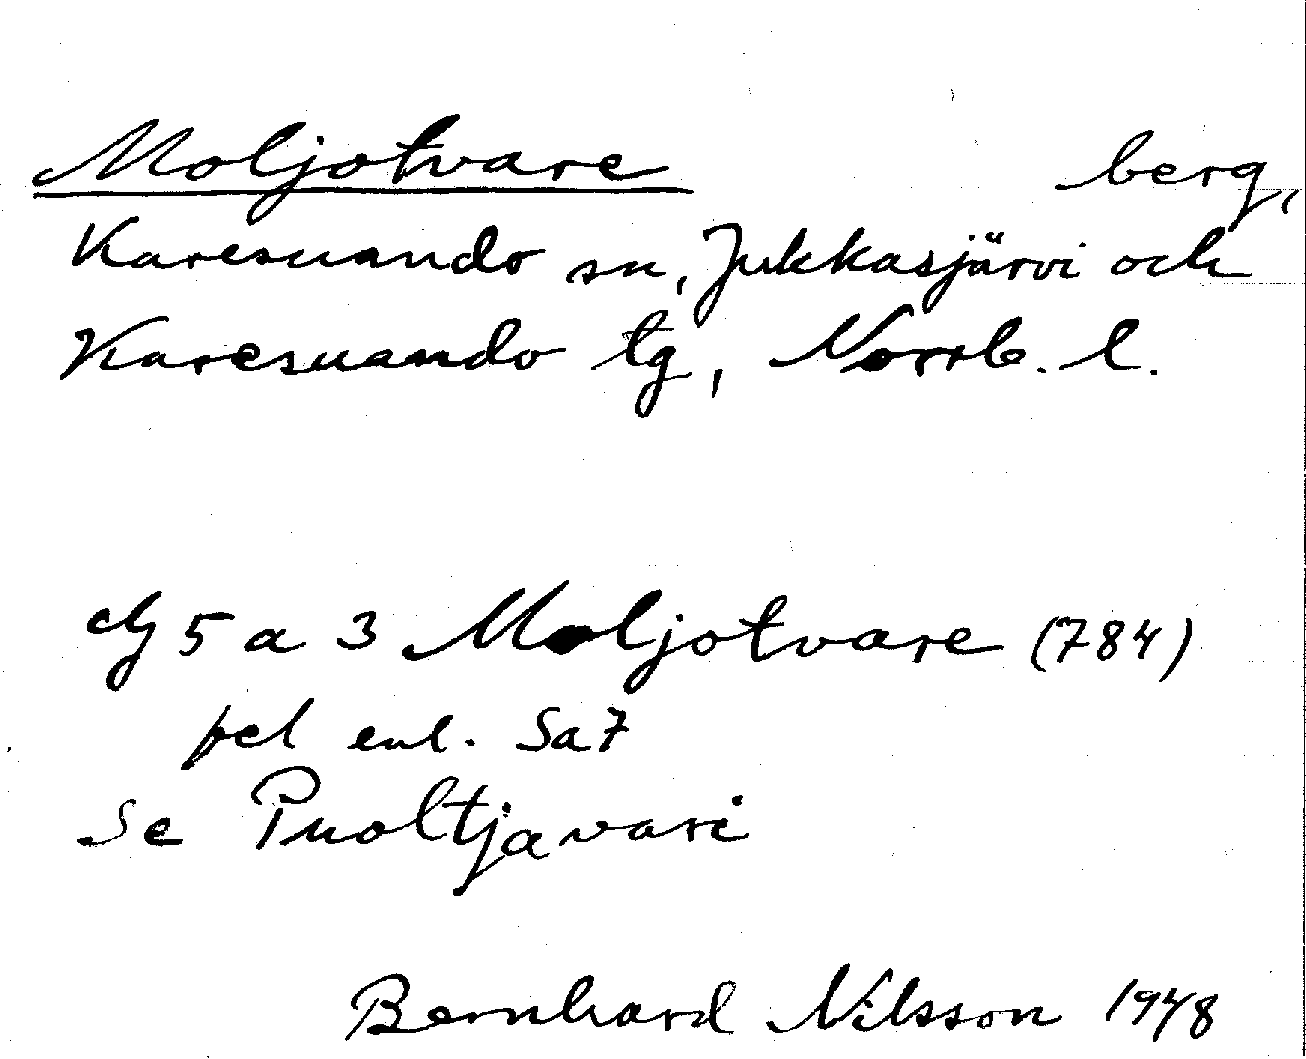 Moljotvare berg,
Karesuando sn, Jukkasjärvi och
Karesuando tg, Norrb. l.
dg 5 a 3 Moljotvare (784)
fel enl. Sa7
Se Puoltjavari
Bernhard Nilsson 1948